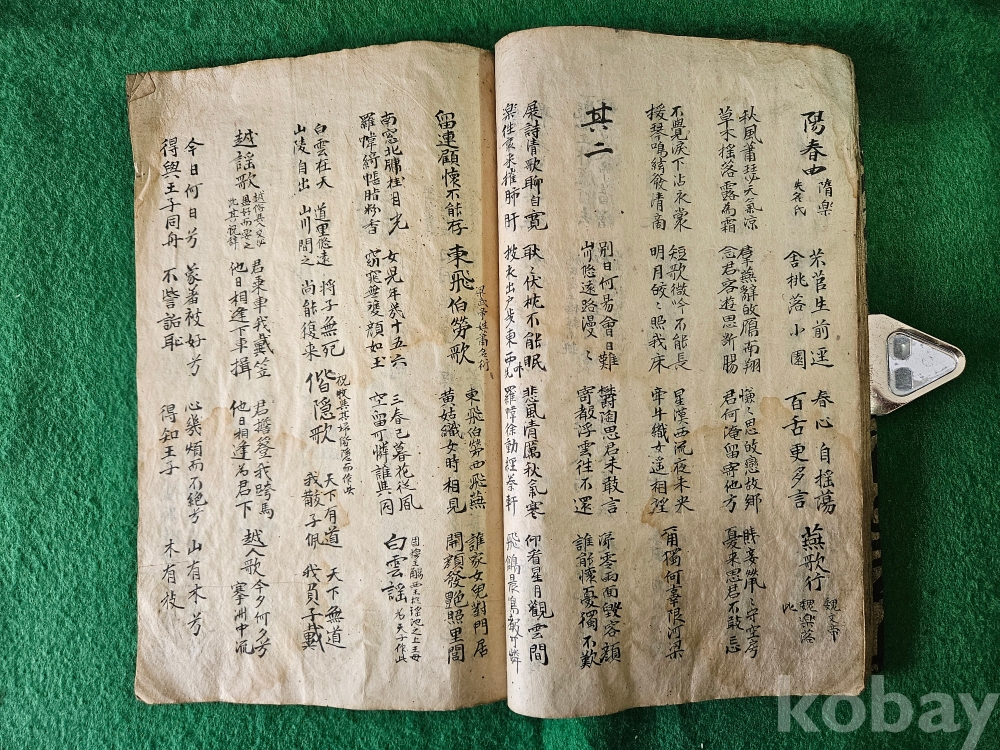 陽春曲 隋樂
失名氏
芣苢生前逕
舍桃落小園
春心自搖蕩
百舌更多言
燕歌行 魏文帝
魏樂府
此
秋風蕭瑟天氣凉
草木搖落露為霜
羣燕辭歸鴈南翔
念君客遊思斷腸
慊々思歸戀故鄉
君何淹留寄他方
賤妾煢々守空房
憂來思君不敢忘
不覺淚下沾衣裳
援琴鳴絃發清商
短歌微吟不能長
明月皎々照我床
星漢西流夜未央
牽牛織女遙相望
爾獨何辜限河梁
其二
別日何易會日難
山川悠遠路漫々
鬱陶思君未敢言
寄聲浮雲往不還
涕零雨面毀容顏
誰能懷憂獨不歎
展詩清歌聊自寬
樂往哀來摧肺肝
耿々伏枕不能眠
披衣出戶步東西
悲風清厲秋氣寒
羅幃徐動經秦軒
仰看星月觀雲間
飛鶬晨鳴聲可憐
留連顧懷不能存
東飛伯勞歌
梁武帝姓蕭名衍
東飛伯勞西飛燕
黃姑織女時相見
誰家女兒對門居
開顏發艶照里閭
南窓北牖挂日光
羅幃綺帳脂粉香
女兒年荒十五六
窈窕無雙顏如玉
三春已暮花從風
空留可憐誰與同
白雲謠
周穆王觴西王母瑤池之上王母
為天子作此
白雲在天
山陵自出
道里悠遠
山川間之
將子無死
尚能復來
偕隱歌
祝牧與其妻偕隱而作此
天下有道
我黻子佩
天下無道
我負子戴
越謠歌
君乘車我戴笠
他日相逢下車揖
君擔簦我跨馬
他日相逢為君下
越人歌
今夕何夕兮
搴洲中流
今日何日兮
得與王子同舟
蒙羞被好兮
不訾詬恥
心幾頑而不絕兮
得知王子
山有木兮
木有枝
kobay